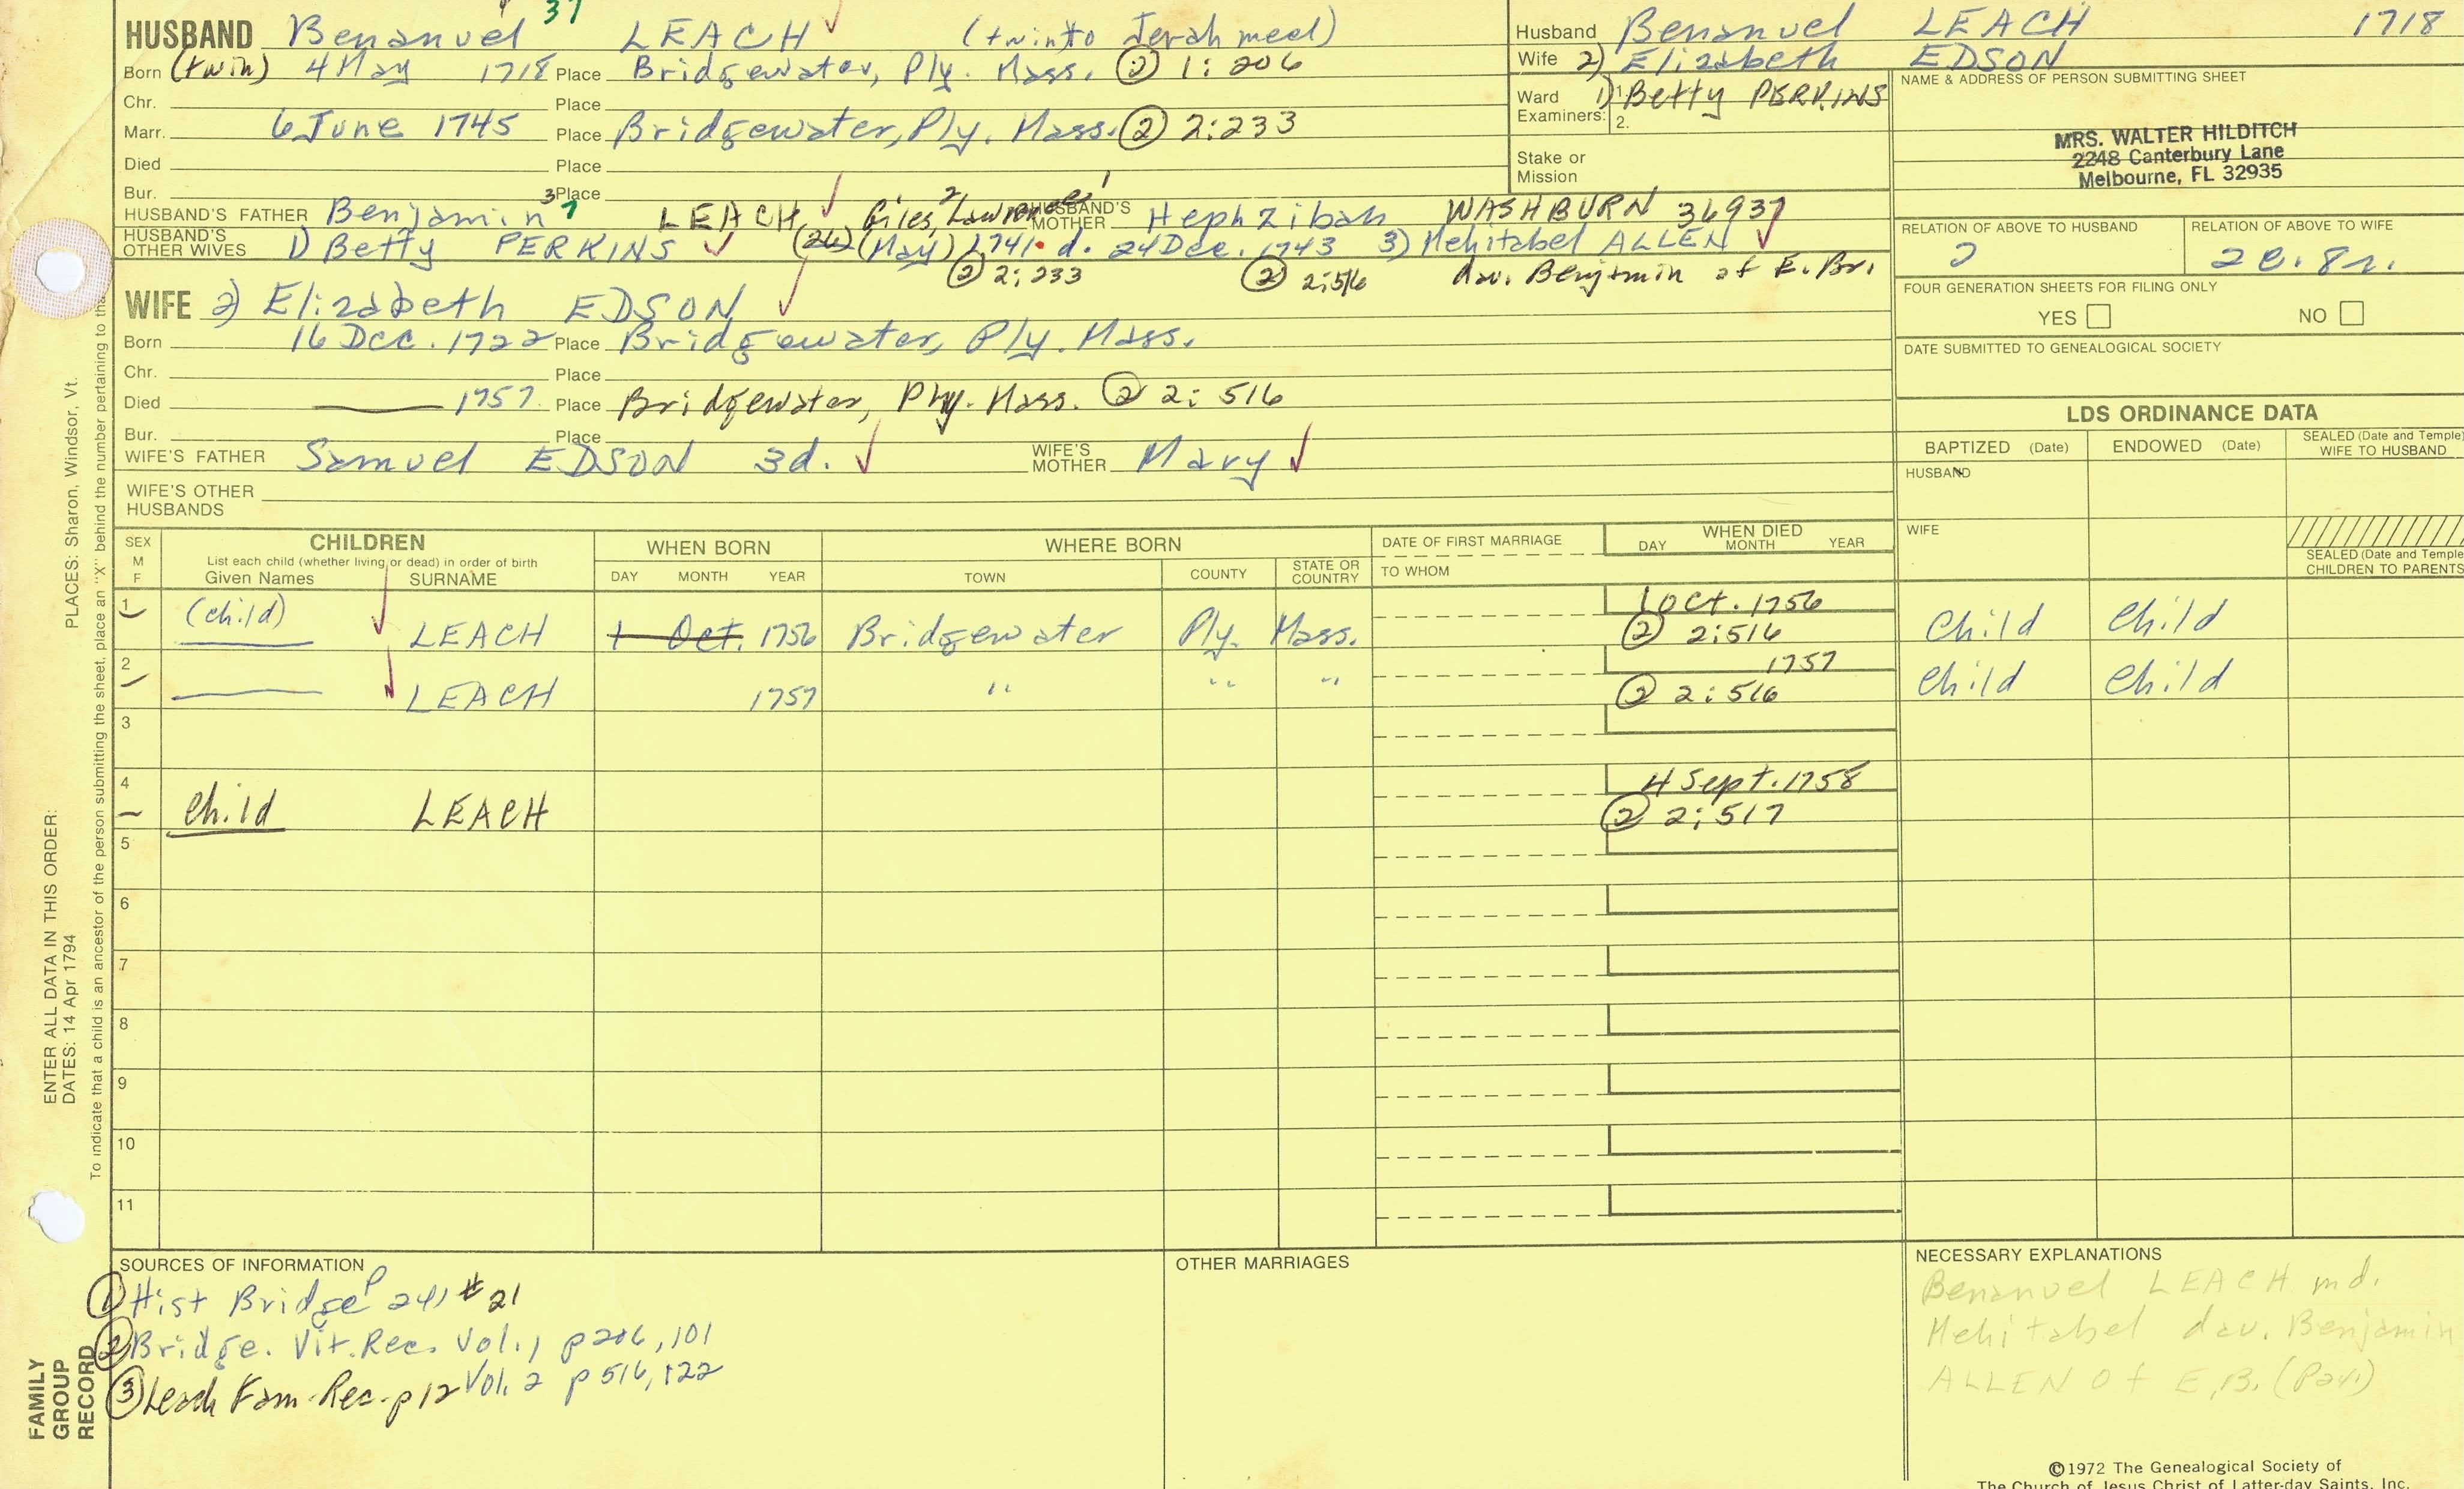 37
HUSBAND Benanuel LEACH (twin to Jerahmeel)
Born (twin) 4 May 1718 Place Bridgewater, Ply. Mass. ② 1:206
Chr. Place
Marr. 6 June 1745 Place Bridgewater, Ply. Mass. ② 2:233
Died Place
Bur. Place
HUSBAND'S FATHER Benjamin 3 LEACH, Giles 2, Lawrence 1 HUSBAND'S MOTHER Hephzibah WASHBURN 36937
HUSBAND'S OTHER WIVES 1) Betty PERKINS (26) (May) 1741. d. 24 Dec. 1743 3) Mehitabel ALLEN
② 2:233 ② 2:516 dau. Benjamin of E. Br.
WIFE 2) Elizabeth EDSON
Born 16 Dec. 1722 Place Bridgewater, Ply. Mass.
Chr. Place
Died 1757 Place Bridgewater, Ply. Mass. ② 2:516
Bur. Place
WIFE'S FATHER Samuel EDSON 3d. WIFE'S MOTHER Mary
WIFE'S OTHER HUSBANDS
Husband Benanuel LEACH 1718
Wife 2) Elizabeth EDSON
Ward 1) 1. Betty PERKINS
Examiners: 2.
Stake or
Mission
NAME & ADDRESS OF PERSON SUBMITTING SHEET
MRS. WALTER HILDITCH
2248 Canterbury Lane
Melbourne, FL 32935
RELATION OF ABOVE TO HUSBAND RELATION OF ABOVE TO WIFE
FOUR GENERATION SHEETS FOR FILING ONLY
YES NO
DATE SUBMITTED TO GENEALOGICAL SOCIETY
LDS ORDINANCE DATA
BAPTIZED (Date) ENDOWED (Date) SEALED (Date and Temple) WIFE TO HUSBAND
HUSBAND
WIFE
SEALED (Date and Temple
CHILDREN TO PARENTS
SEX M F CHILDREN WHEN BORN WHERE BORN DATE OF FIRST MARRIAGE WHEN DIED
List each child (whether living or dead) in order of birth
Given Names SURNAME DAY MONTH YEAR TOWN COUNTY STATE OR COUNTRY TO WHOM DAY MONTH YEAR
1 (child) LEACH 1 Oct. 1756 Bridgewater Ply. Mass. 1 Oct. 1756 Child Child
② 2:516
2 LEACH 1757 " " " 1757 Child Child
② 2:516
3
4 child LEACH 4 Sept. 1758
② 2:517
5
6
7
8
9
10
11
SOURCES OF INFORMATION
① Hist Bridge P 241 #21
② Bridge. Vit. Rec. Vol. 1 p 206, 101
Vol. 2 p 516, 122
③ Leach Fam. Rec. p 12
OTHER MARRIAGES
NECESSARY EXPLANATIONS
Benanuel LEACH md.
Mehitabel dau. Benjamin
ALLEN of E.B. (P241)
©1972 The Genealogical Society of
The Church of Jesus Christ of Latter-day Saints, Inc.
PLACES: Sharon, Windsor, Vt.
ENTER ALL DATA IN THIS ORDER:
DATES: 14 Apr 1794
To indicate that a child is an ancestor of the person submitting the sheet, place an "X" behind the number pertaining to tha
FAMILY
GROUP
RECORD